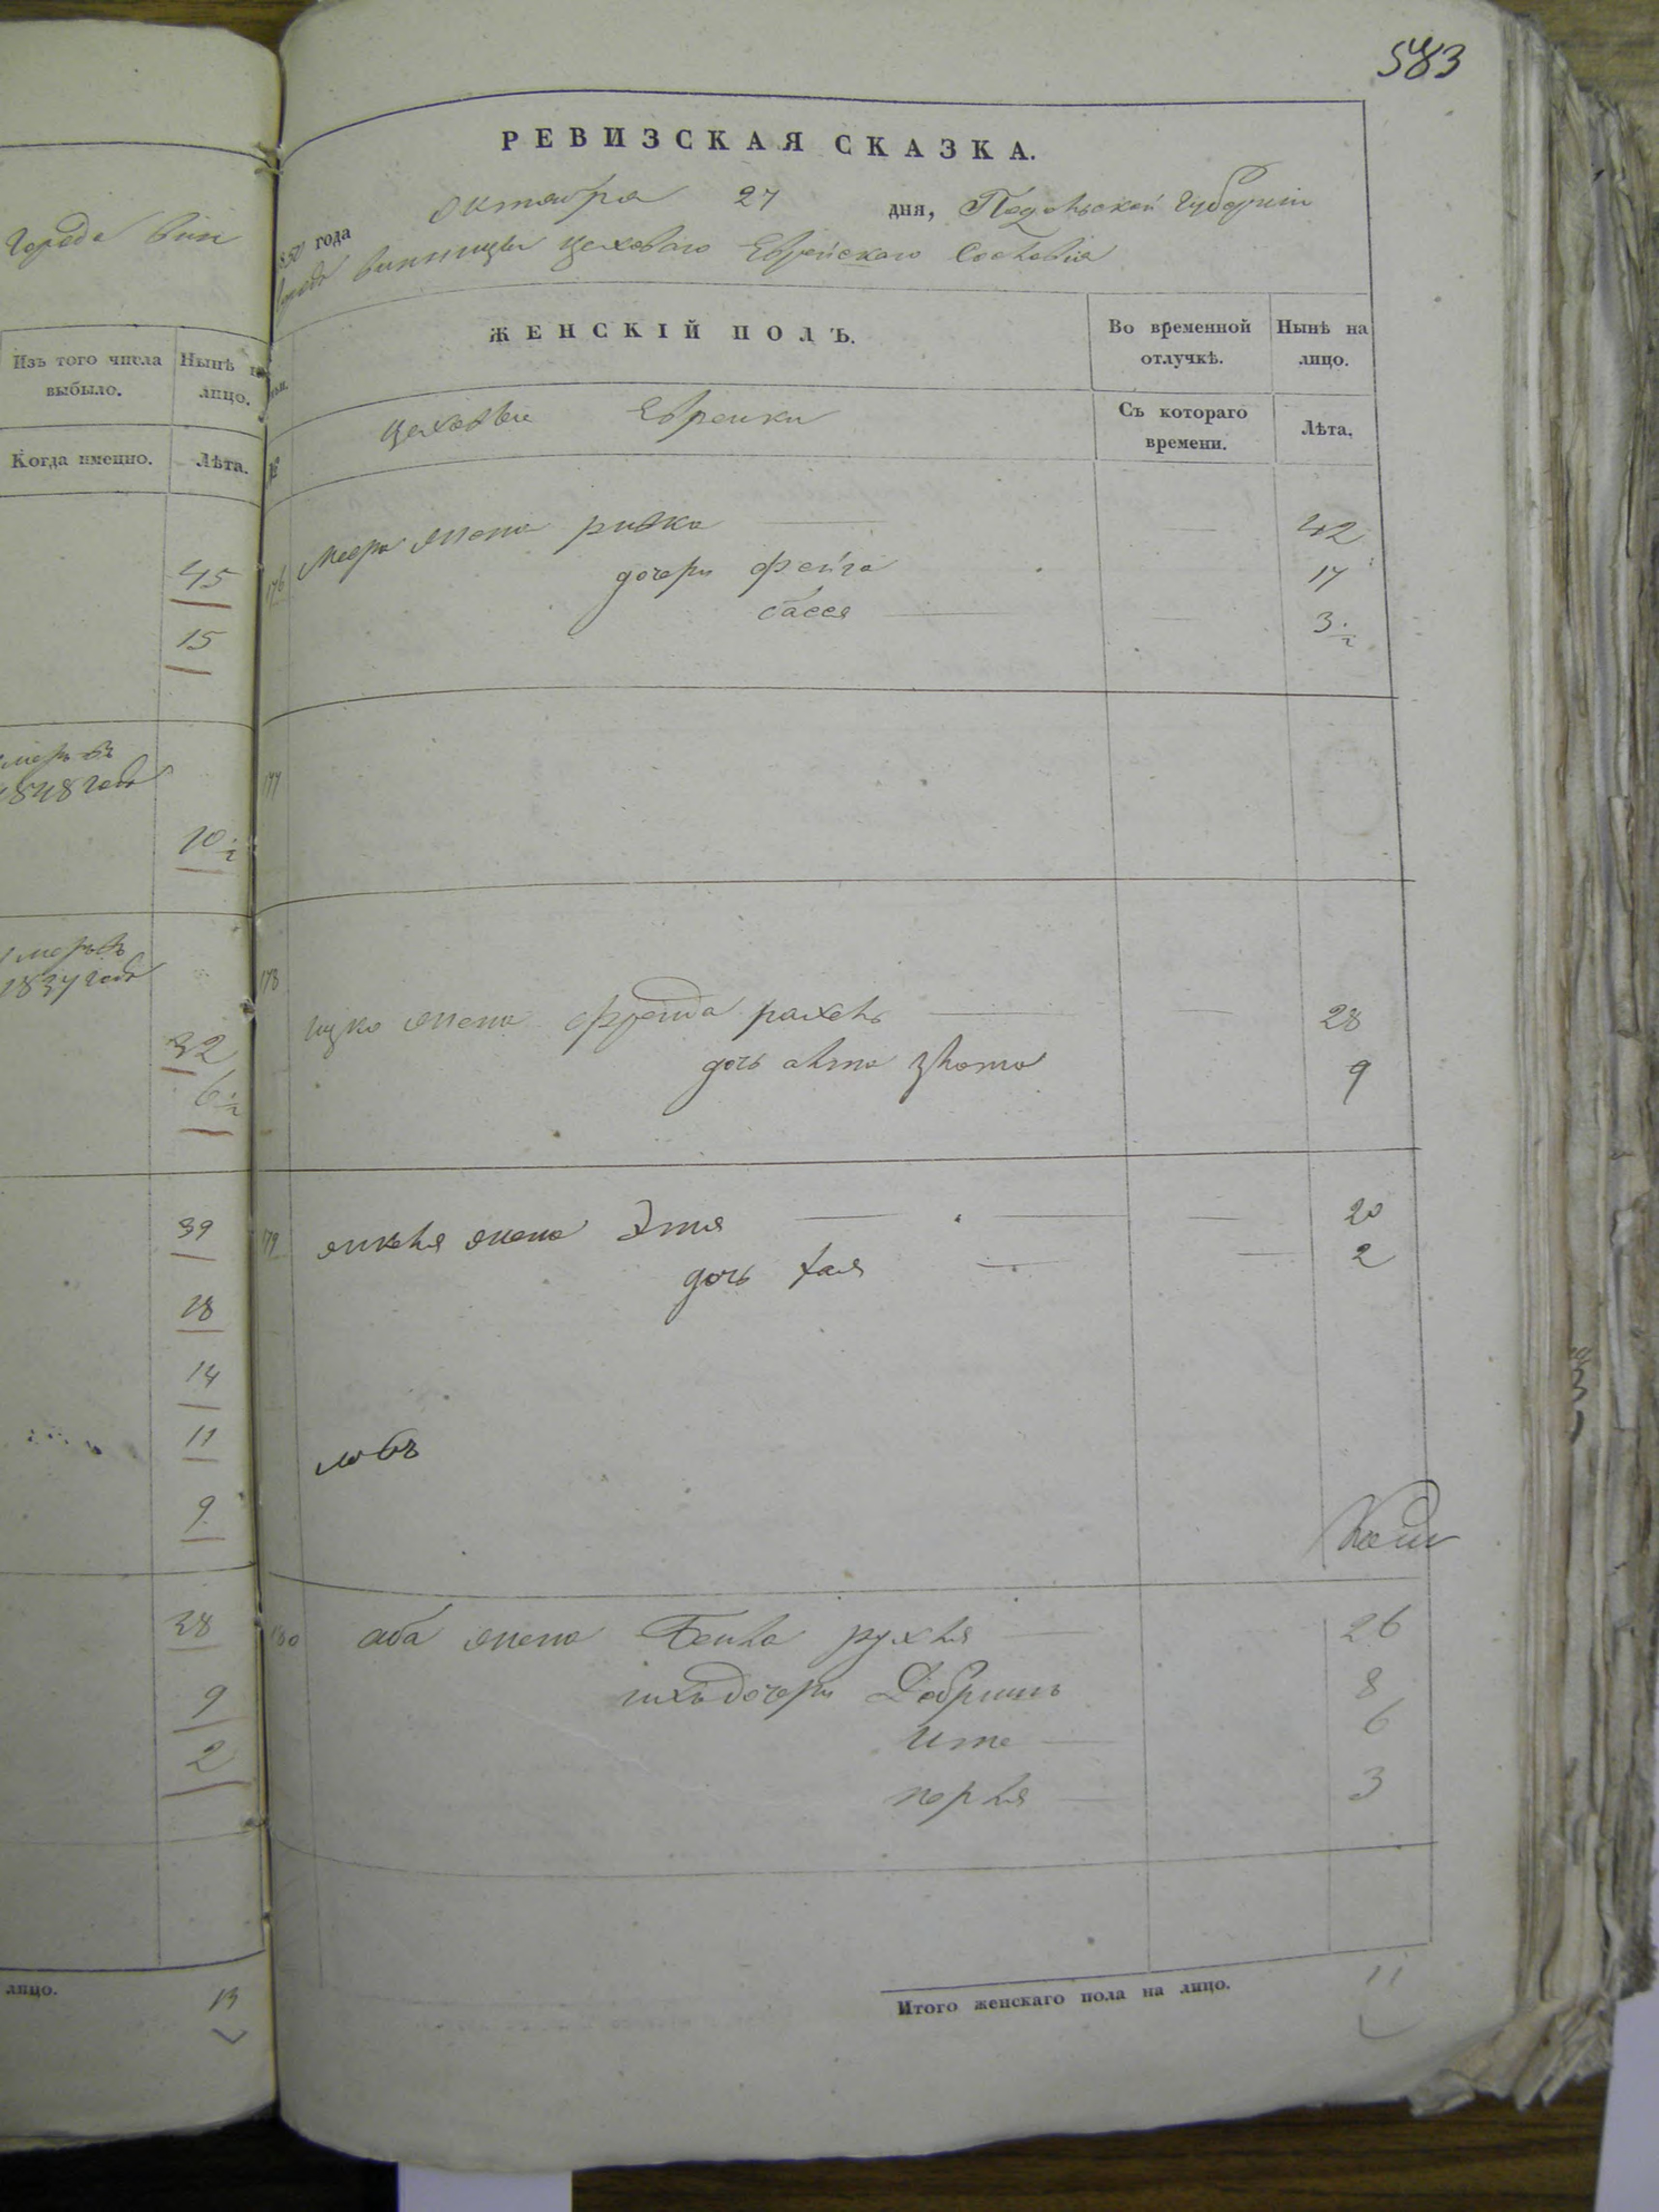 Города Вин
Изъ того числа выбыло.
Нынѣ на лицо.
Когда именно.
Лѣта.
45
15
умеръ въ
1848 года
10 1/2
умеръ въ
1837 года
32
6 1/2
39
18
14
11
9
38
9
2
лицо.
13
583
РЕВИЗСКАЯ СКАЗКА.
1850 года октября 27 дня, Подольской Губерніи
города винницы цеховаго Еврейскаго Сословія
ЖЕНСКІЙ ПОЛЪ.
Во временной отлучкѣ.
Нынѣ на лицо.
№
цеховые Еврейки
Съ котораго времени.
Лѣта.
176 Меера жена ривка 42
дочери фейга 17
бася 3 1/2
177
178
ицко жена фрейда рахель 28
дочь акта злота 9
179 янкеля жена Этя 20
дочь хая 2
180 аба жена Бейла рухля 26
ихъ дочери Добришъ 8
Ите 6
перля 3
Итого женскаго пола на лицо.
11